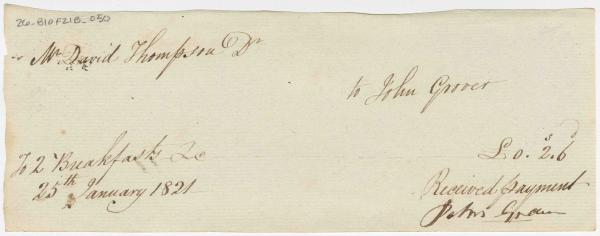 26-B10F21B-050
Mr David Thompson Dr
to John Grover
To 2 Breakfasts &c
£0. 2s.6d
25th January 1821
Received payment
John Grover